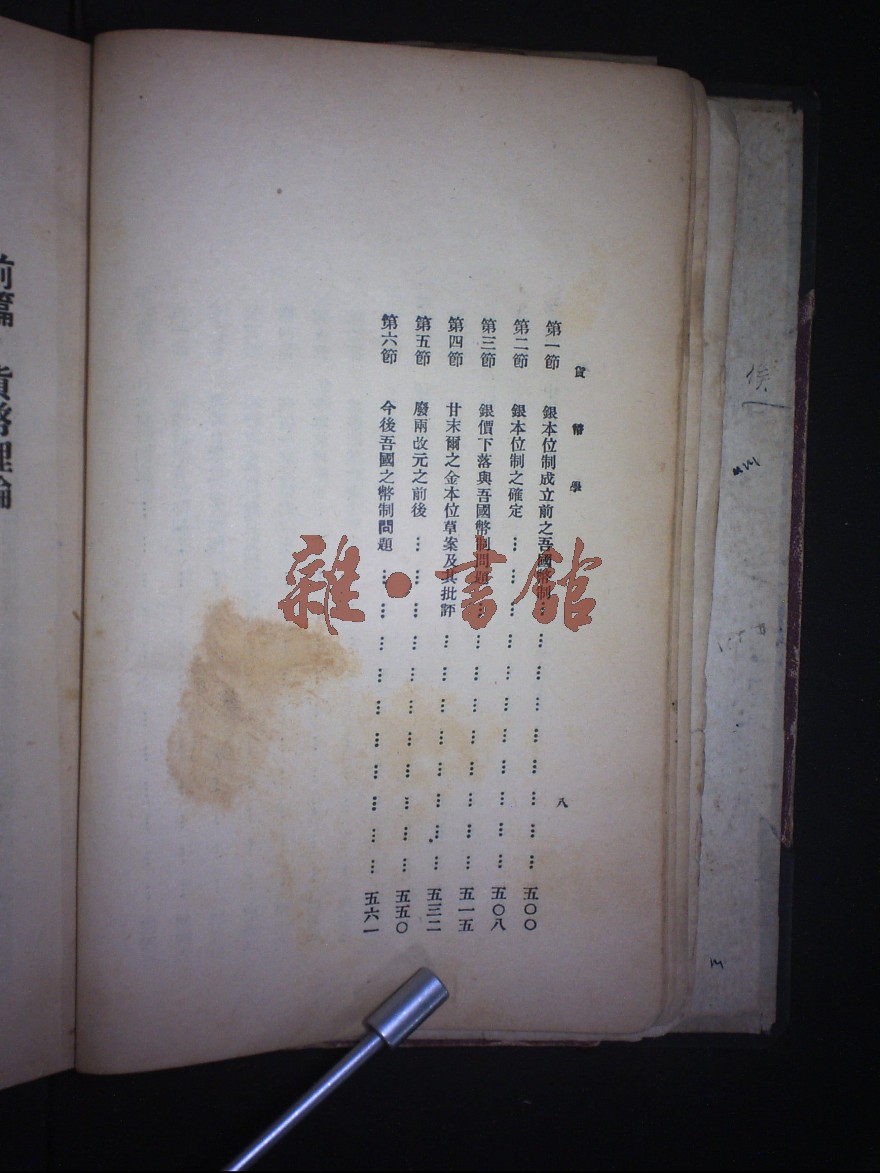 貨幣學
八
第一節 銀本位制成立前之吾國幣制 五〇〇
第二節 銀本位制之確定 五〇八
第三節 銀價下落與吾國幣制問題 五一五
第四節 甘末爾之金本位草案及其批評 五三二
第五節 廢兩改元之前後 五五〇
第六節 今後吾國之幣制問題 五六一
前篇 貨幣理論
雜·書館